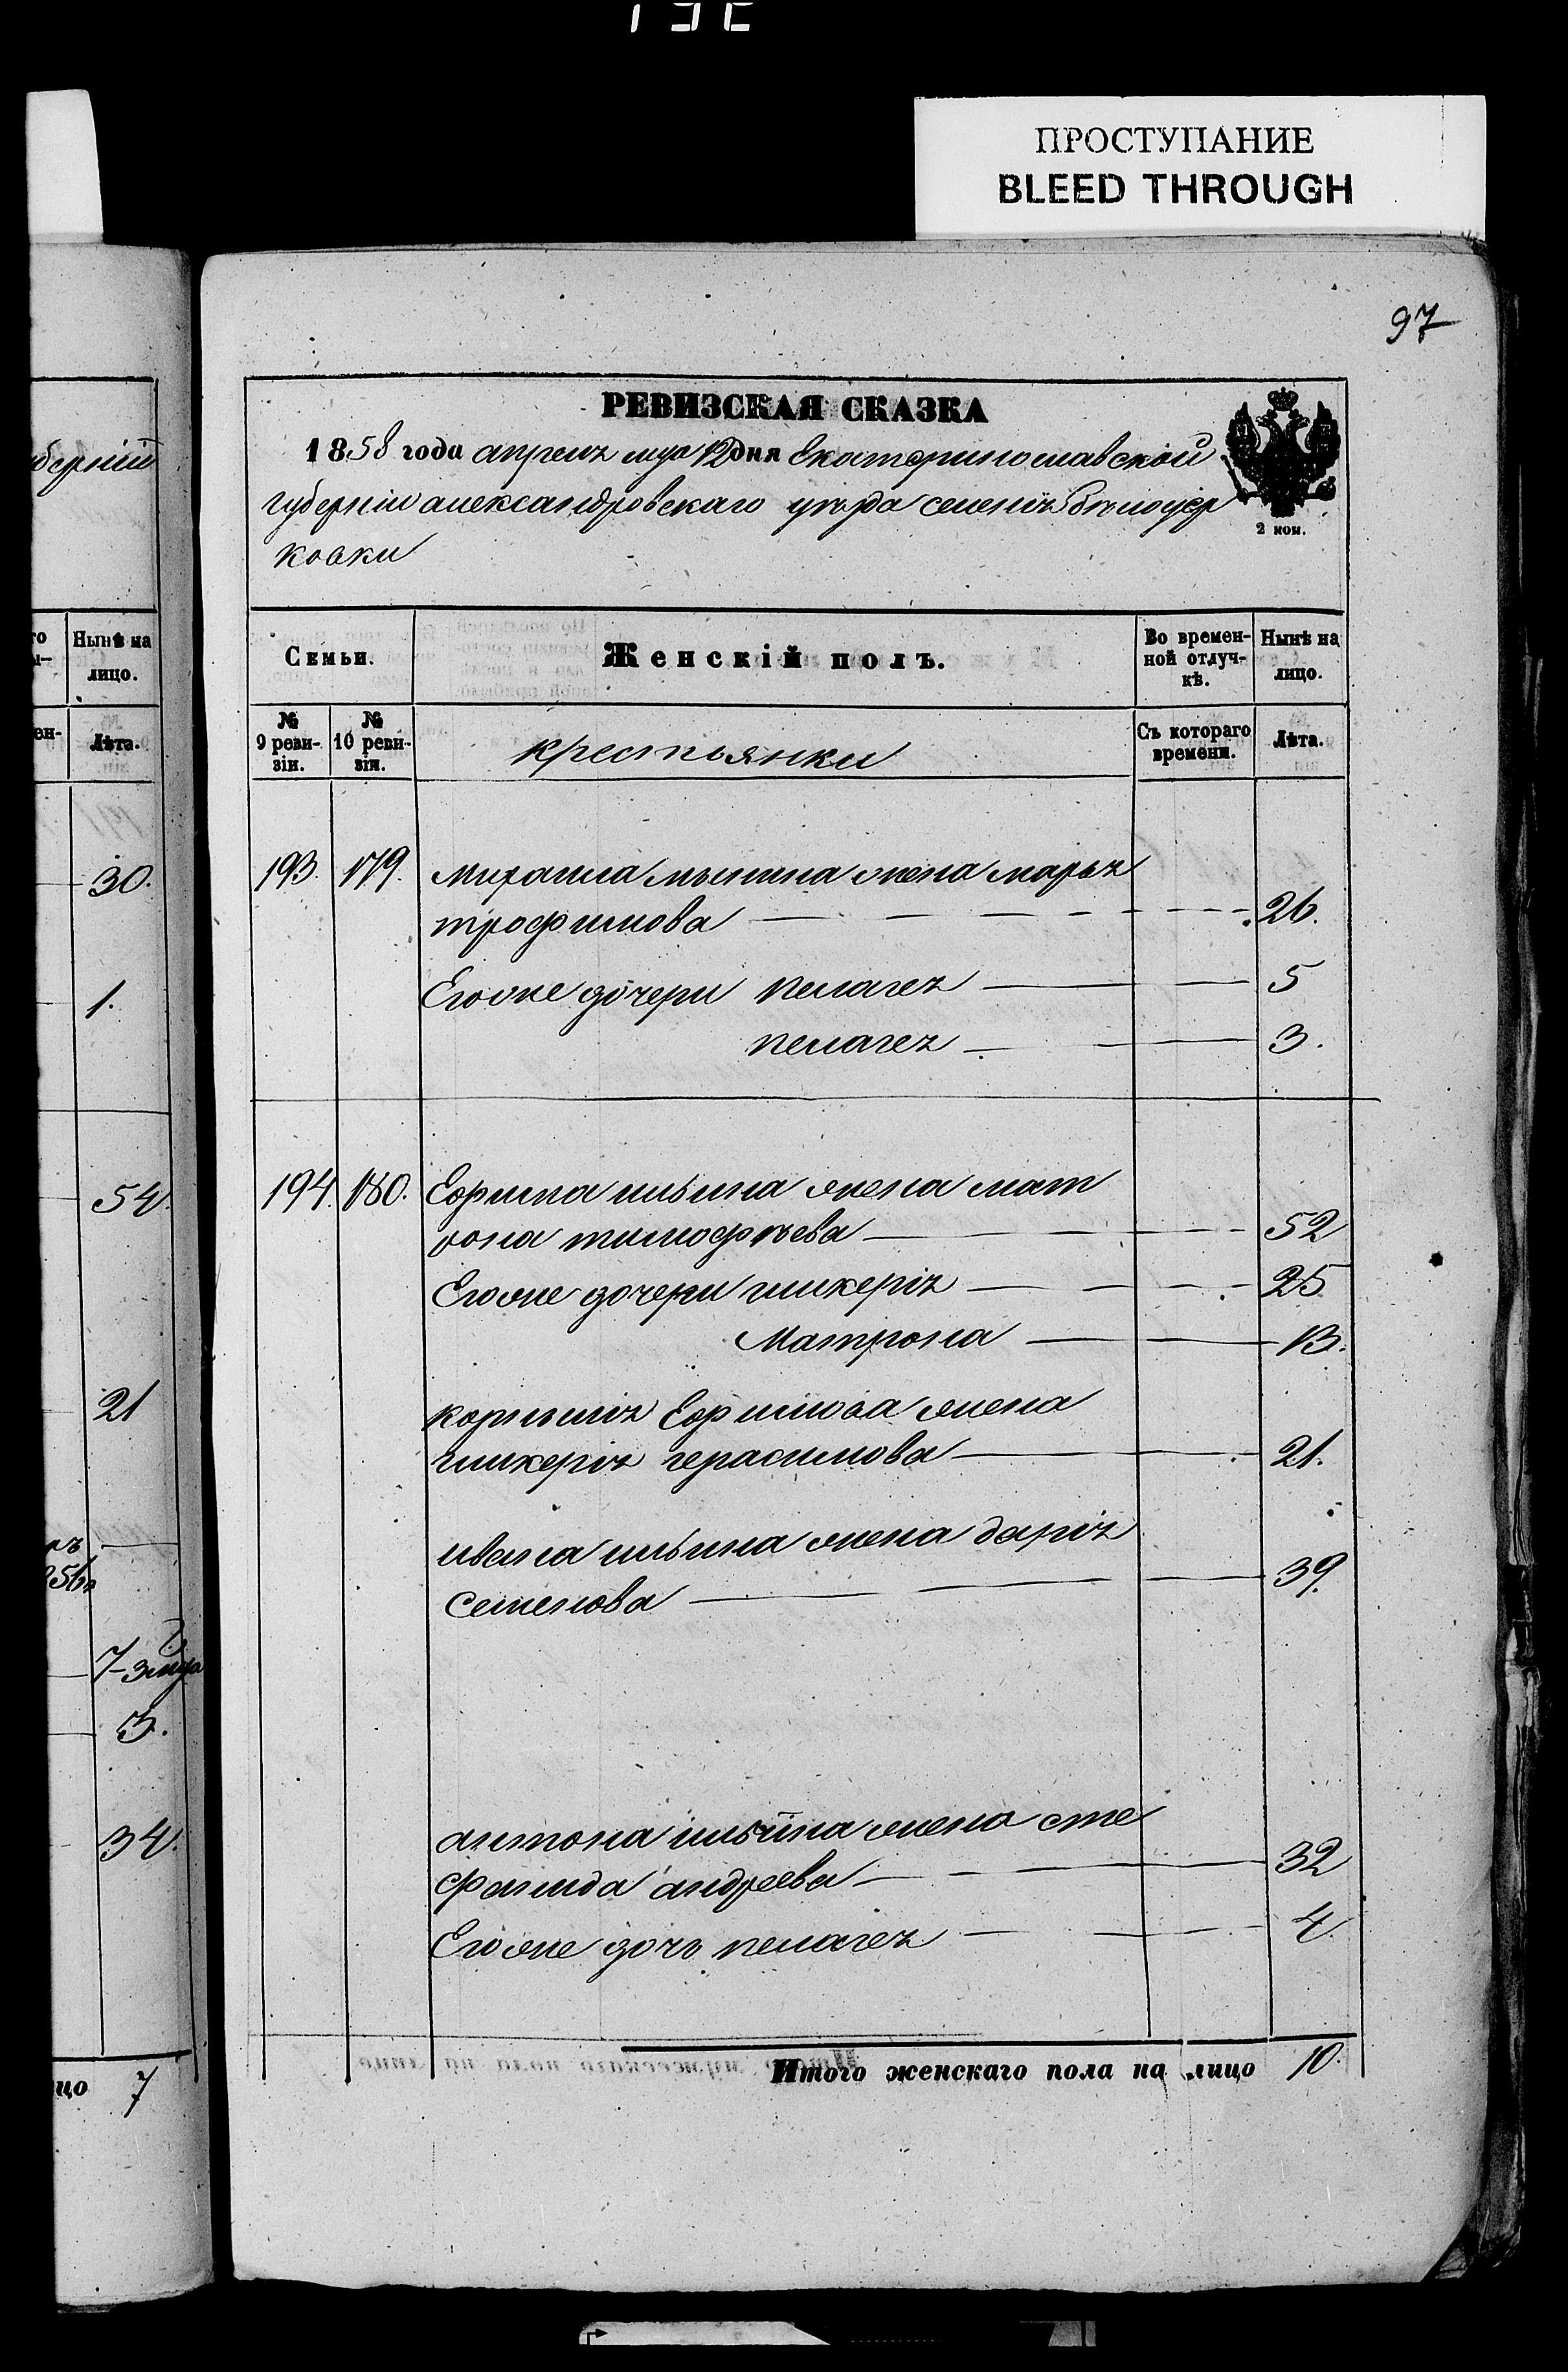 ПРОСТУПАНИЕ
BLEED THROUGH
97
РЕВИЗСКАЯ СКАЗКА
1858 года апреля мца 12 дня Екатеринославской
губерніи александровскаго уѣзда селенія Бѣлоцер
ковки
2 коп.
Семьи.
Женскій полъ.
Во времен-
ной отлуч-
кѣ.
Нынѣ на
лицо.
№
9 реви-
зіи.
№
10 реви-
зіи.
крестьянки
Съ котораго
времени.
Лѣта.
193. 179. михаила ильина жена марья
трофимова 26.
Егоже дочери пелагея 5
пелагея 3.
194. 180. Ефима ильина жена мат
рона тимофѣева 52
Егоже дочери гликерія 25
Матрона 13.
корнилія Ефимова жена
гликерія герасимова 21.
ивана ильина жена дарія
Семенова 39.
антона ильина жена сте
фанида андреева 32
Егоже дочь пелагея 4.
Итого женскаго пола на лицо 10.
губерніи
Нынѣ на
лицо.
Лѣта.
30.
1.
54.
21
7-3 мца
3.
34.
цо 7